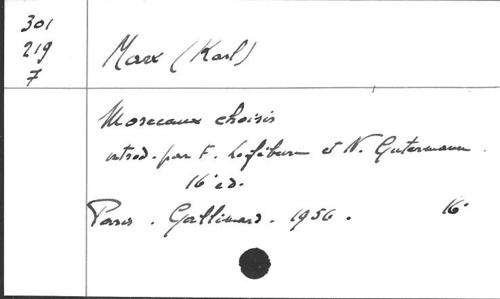 301
219
7
Marx (Karl)
Morceaux choisis
introd. par F. Lefebvre et N. Gutermann.
16° éd.
Paris. Gallimard. 1956.
16°